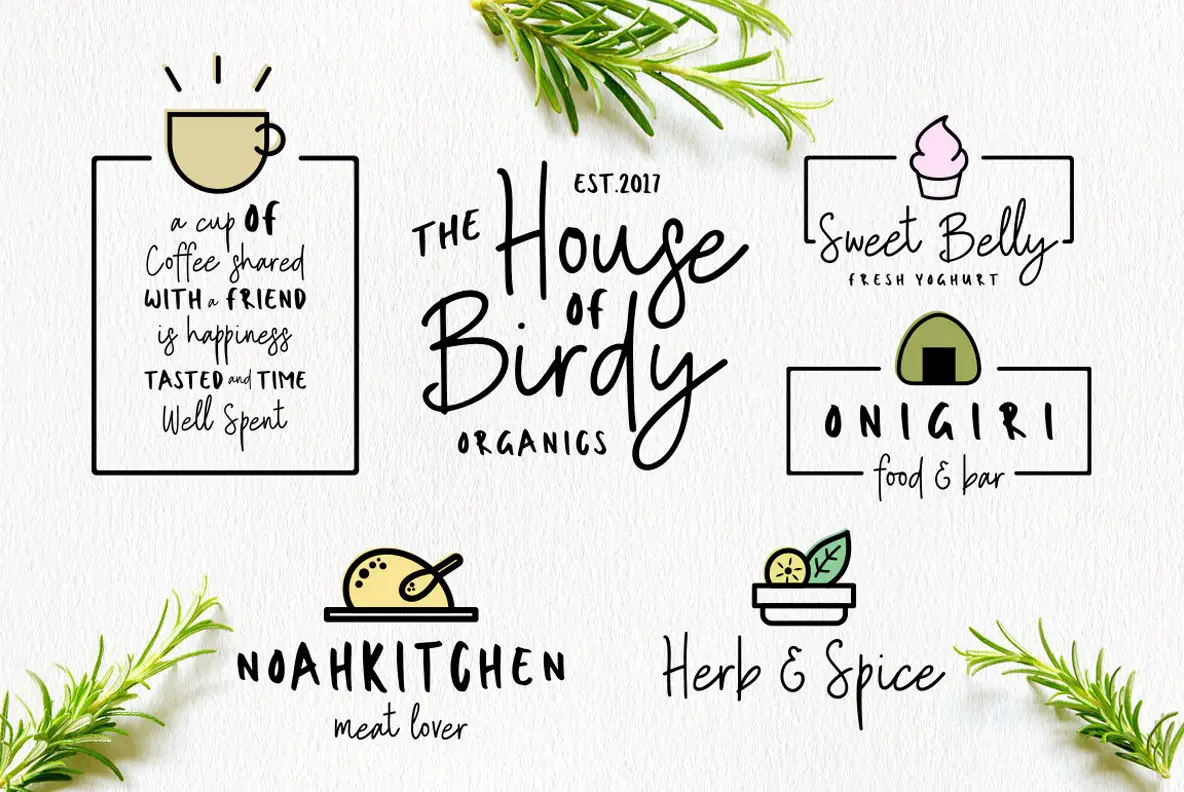 a cup OF
Coffee shared
WITH a FRIEND
is happiness
TASTED and TIME
Well Spent
EST.2017
THE House
OF
Birdy
ORGANICS
Sweet Belly
FRESH YOGHURT
ONIGIRI
food & bar
NOAHKITCHEN
meat lover
Herb & Spice